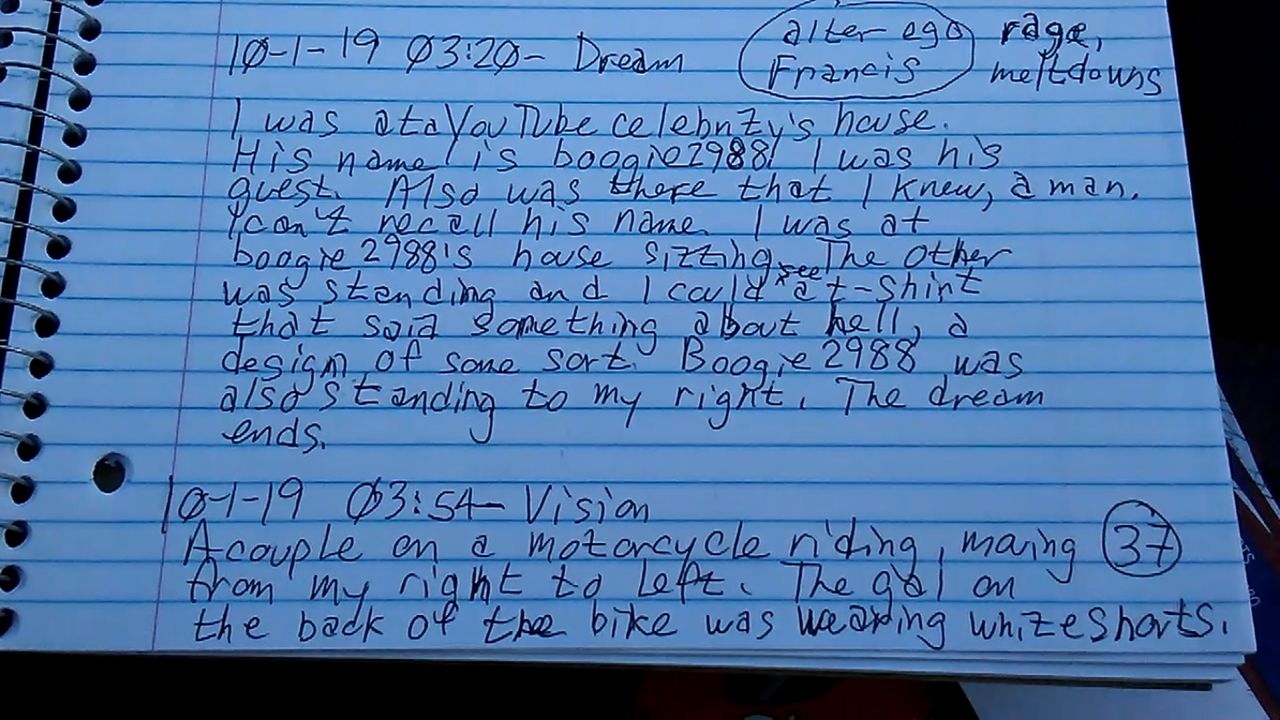 10-1-19 03:20- Dream
alter ego Francis
rage, meltdowns
I was at a YouTube celebrity's house.
His name is boogie2988! I was his
guest. Also was there that I knew, a man.
I can't recall his name. I was at
boogie2988's house sitting. The other
was standing and I could see a t-shirt
that said something about hell, a
design of some sort. Boogie2988 was
also standing to my right. The dream
ends.
10-1-19 03:54- Vision
A couple on a motorcycle riding, moving 37
from my right to left. The gal on
the back of the bike was wearing white shorts.